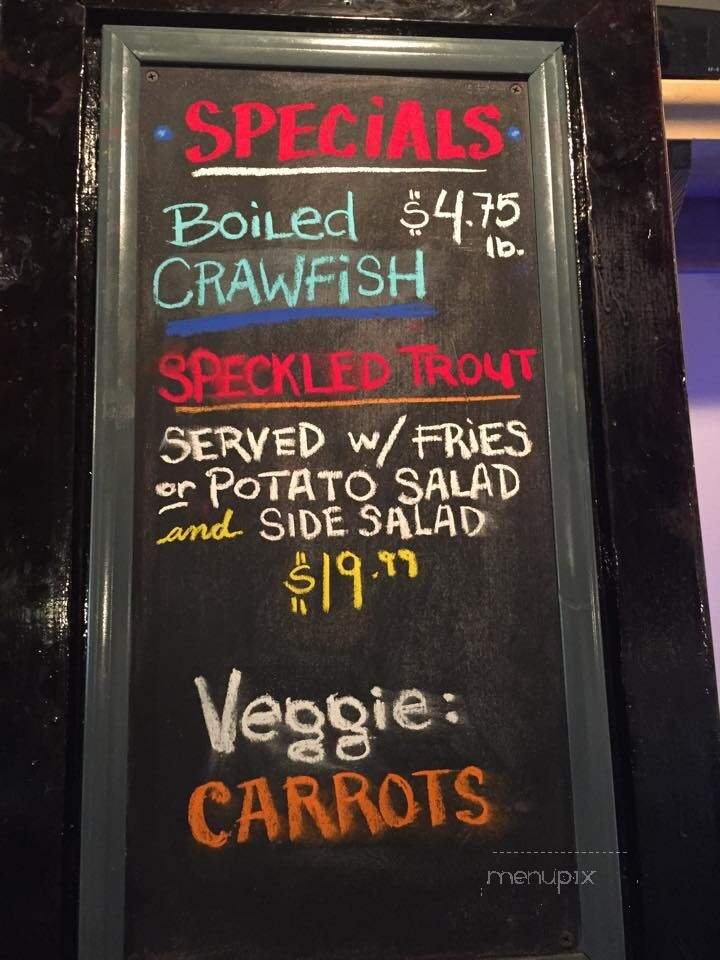 SPECiALS
BoiLed $4.75
CRAWFiSH lb.
SPECKLED TROUT
SERVED W/ FRiES
or POTATO SALAD
and SIDE SALAD
$19.99
Veggie:
CARROTS
menupix